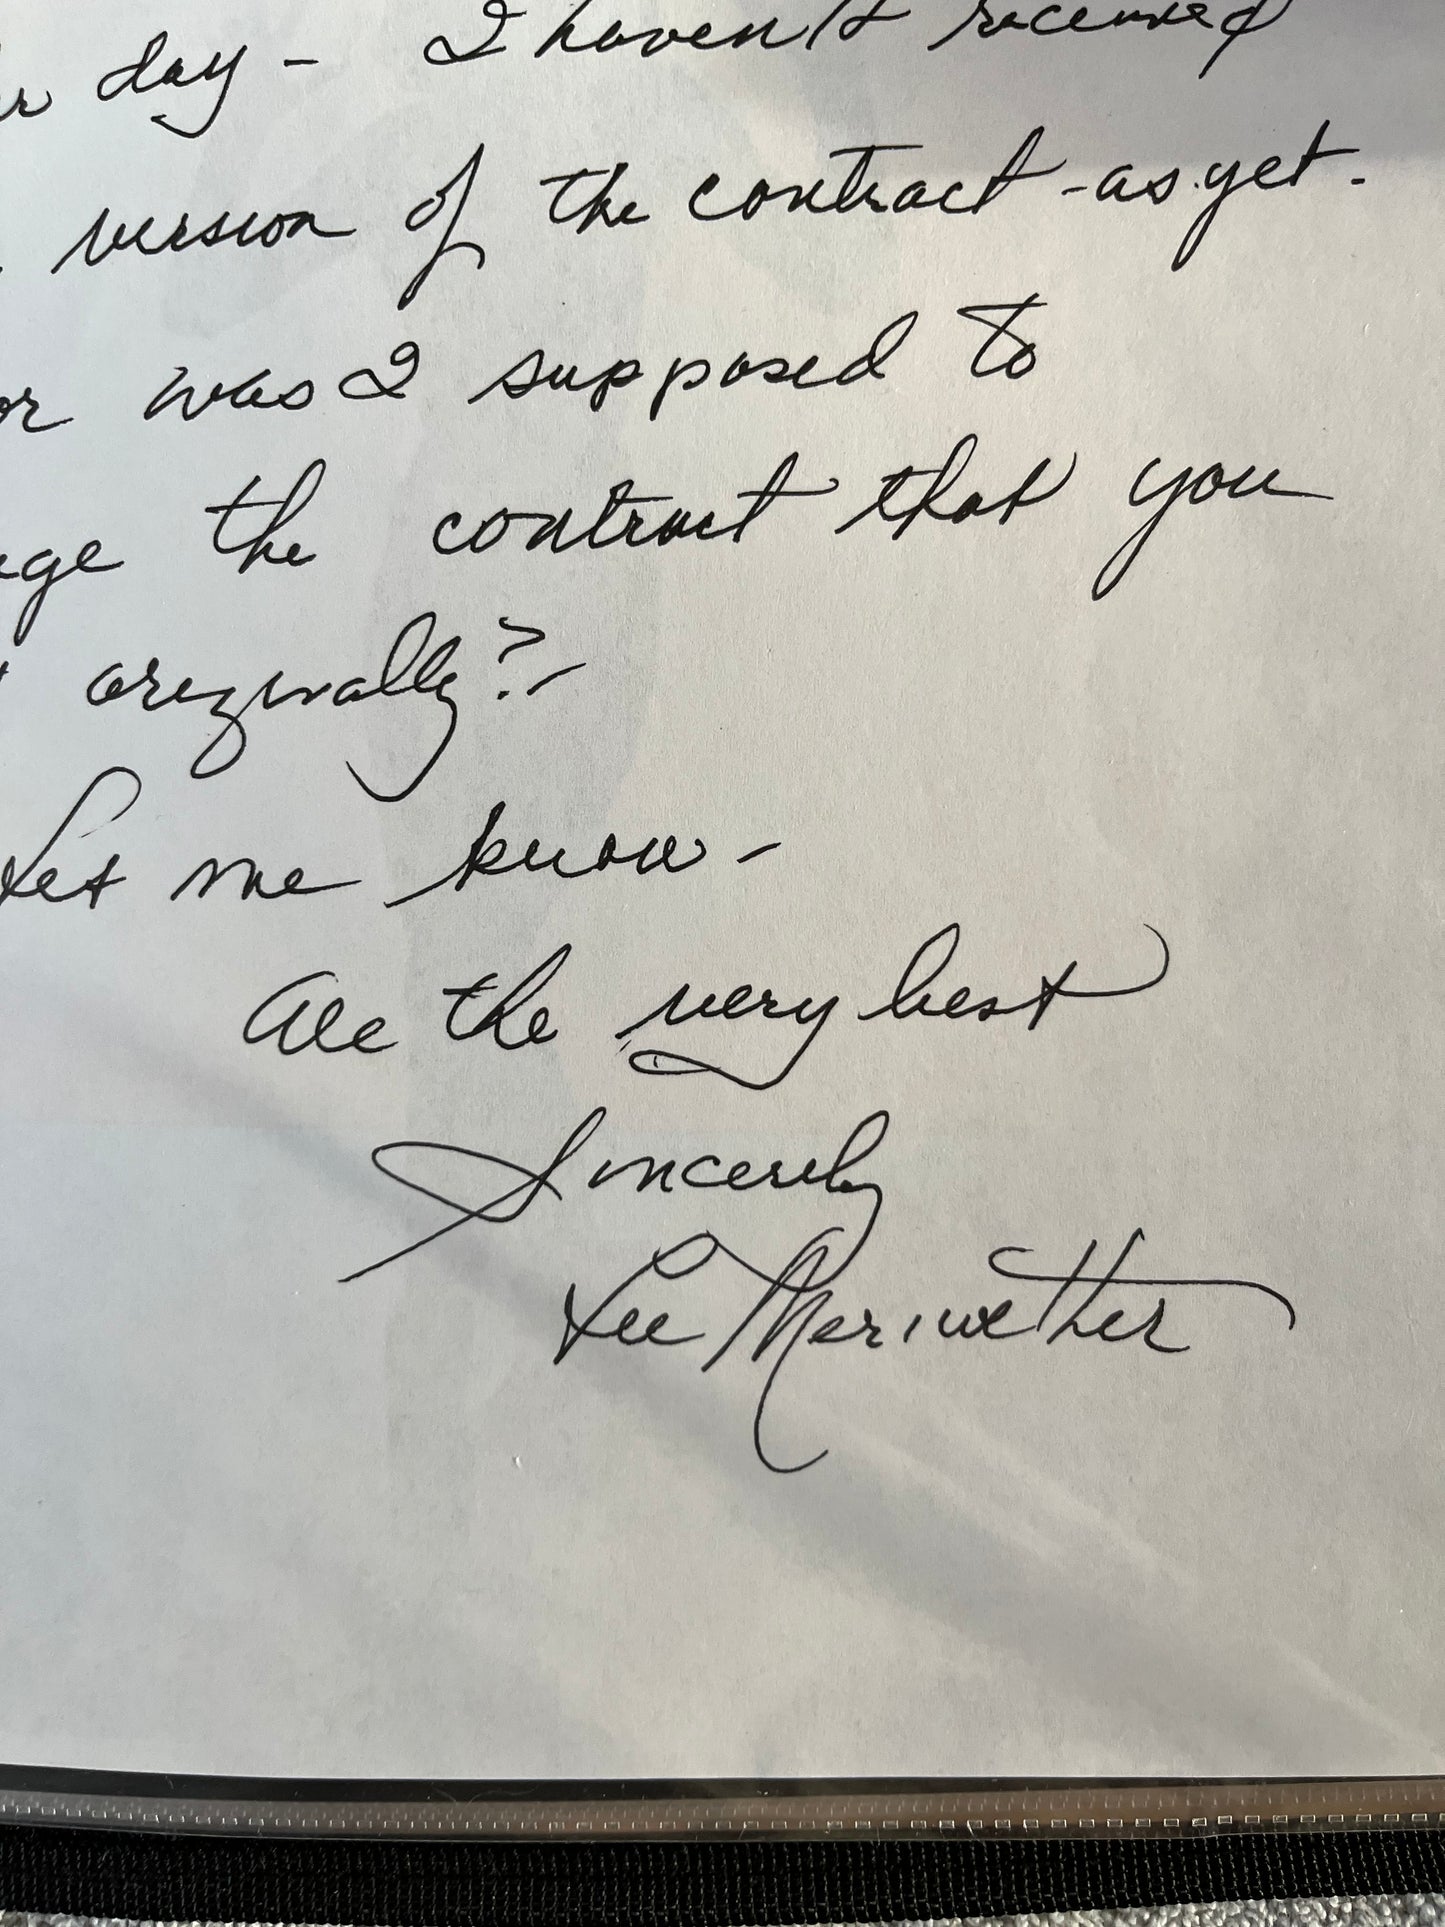 day - I haven't received
version of the contract - as yet.
or was I supposed to
the contract that you
originally? -
Let me know -
All the very best
Sincerely
Lee Meriwether